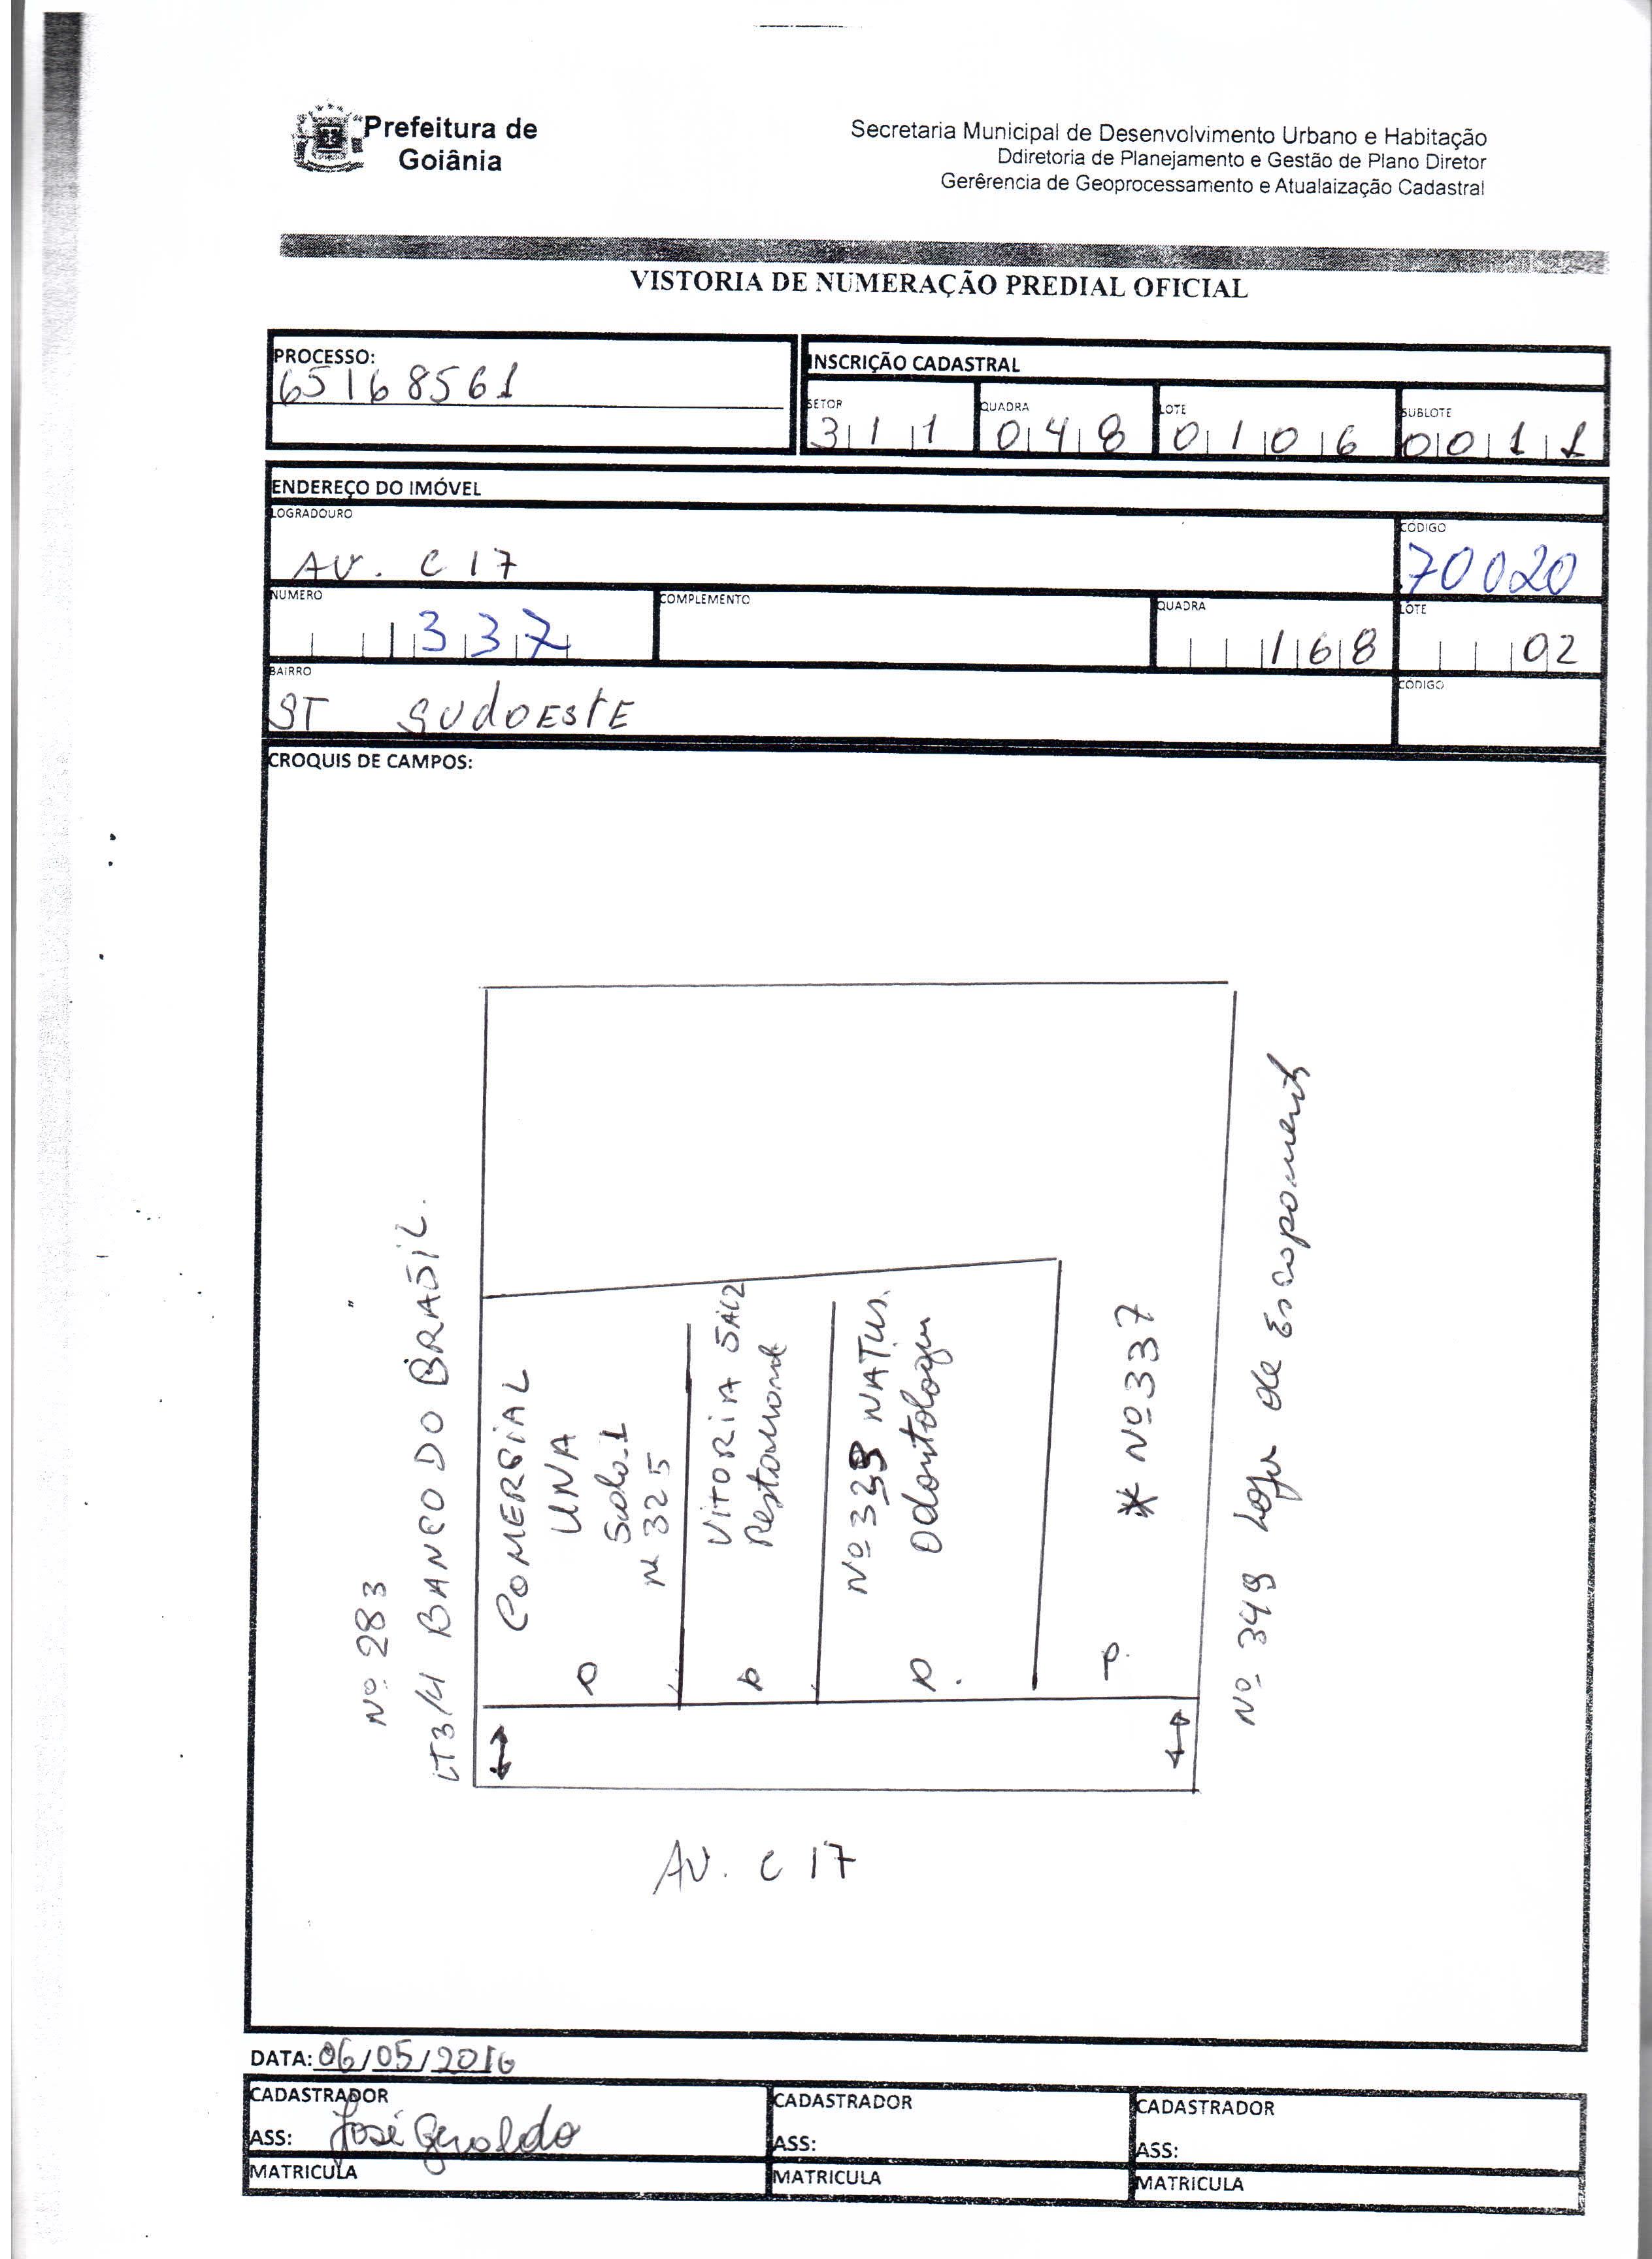 Prefeitura de
Goiânia
Secretaria Municipal de Desenvolvimento Urbano e Habitação
Ddiretoria de Planejamento e Gestão de Plano Diretor
Gerêrencia de Geoprocessamento e Atualaização Cadastral
VISTORIA DE NUMERAÇÃO PREDIAL OFICIAL
PROCESSO:
65168561
INSCRIÇÃO CADASTRAL
SETOR QUADRA LOTE SUBLOTE
311 048 0106 0011
ENDEREÇO DO IMÓVEL
LOGRADOURO CÓDIGO
AV. C 17 70020
NUMERO COMPLEMENTO QUADRA LOTE
337 168 02
BAIRRO CÓDIGO
ST SUDOESTE
CROQUIS DE CAMPOS:
Nº 283
LT3/4 BANCO DO BRASIL.
COMERCIAL
UNA
Sala 1
Nº 325
VITORIA SALA 2
Restaurante
Nº NATUS.
Odontologia
* Nº 337
P.
Nº 349 Loja de Escapamento
AV. C 17
DATA: 06/05/2016
CADASTRADOR CADASTRADOR CADASTRADOR
ASS: José Geraldo ASS: ASS:
MATRICULA MATRICULA MATRICULA